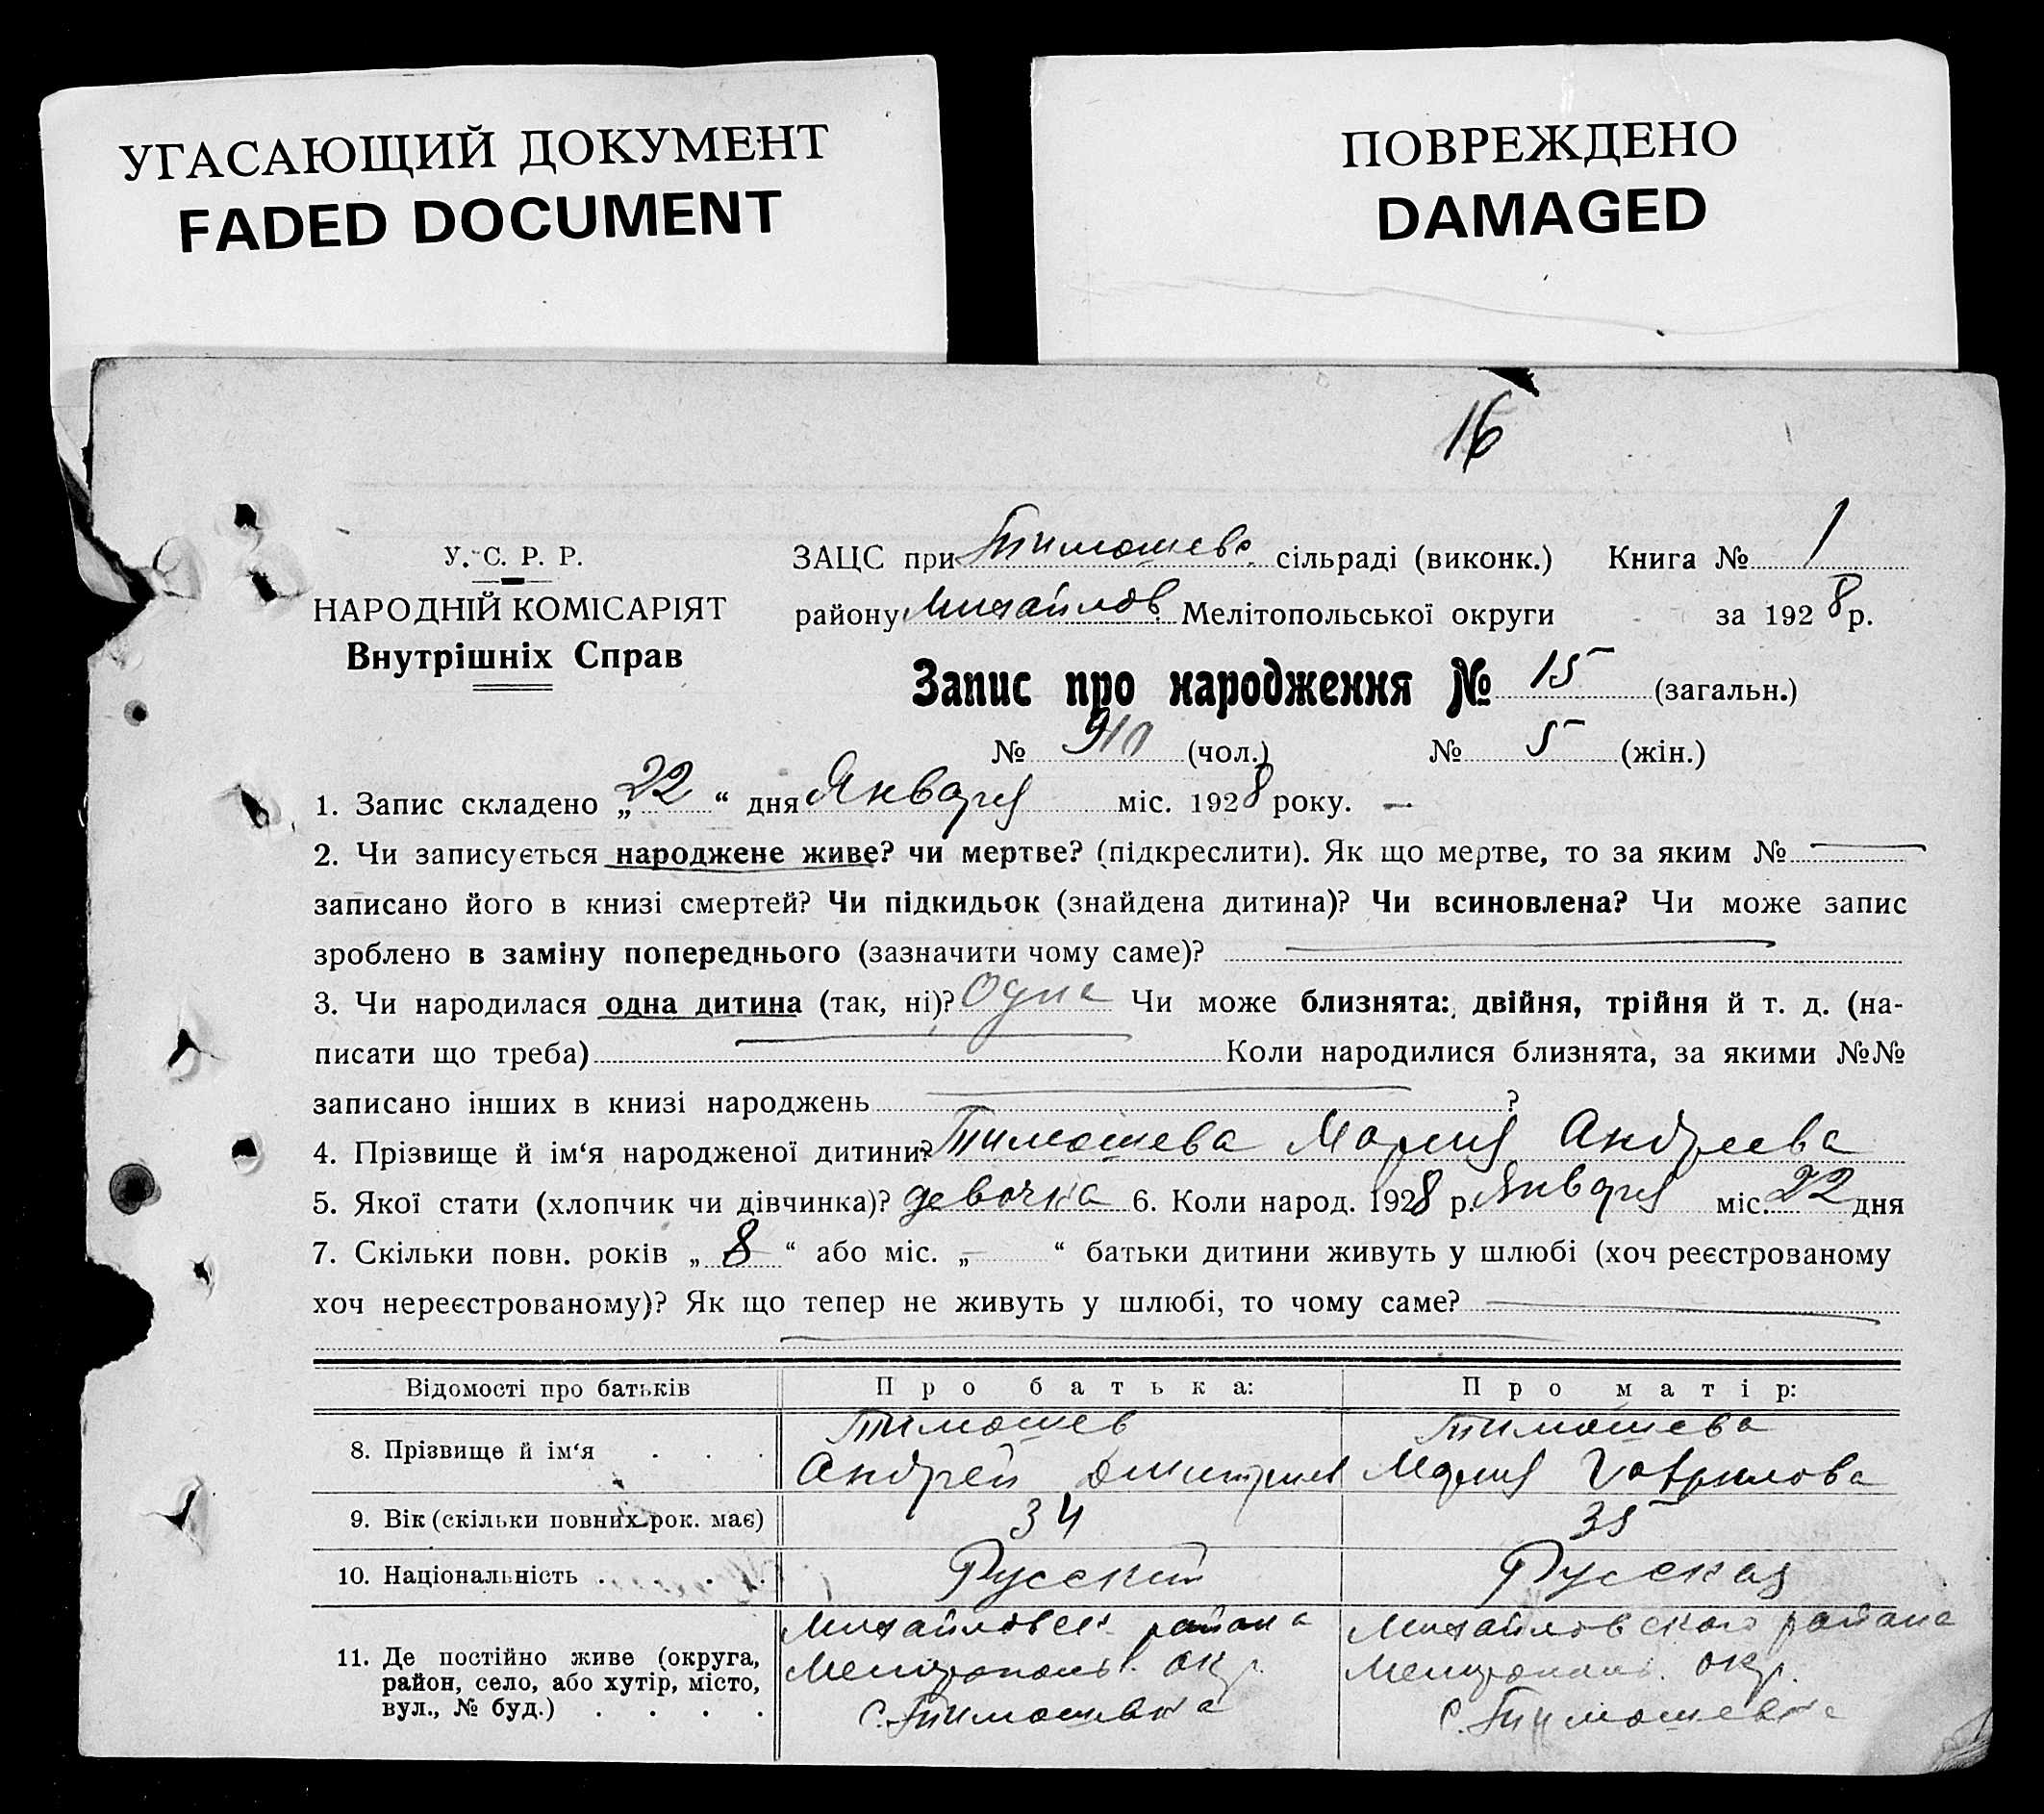 УГАСАЮЩИЙ ДОКУМЕНТ
FADED DOCUMENT
ПОВРЕЖДЕНО
DAMAGED
16
У. С. Р. Р.
НАРОДНІЙ КОМІСАРІЯТ
Внутрішніх Справ
ЗАЦС при Тимошевс. сільраді (виконк.) Книга № 1
району Михайлов. Мелітопольської округи за 1928 р.
Запис про народження № 15 (загальн.)
№ (чол.) № 5 (жін.)
1. Запис складено „22“ дня Января міс. 1928 року. —
2. Чи записується народжене живе? чи мертве? (підкреслити). Як що мертве, то за яким № —
записано його в книзі смертей? Чи підкидьок (знайдена дитина)? Чи всиновлена? Чи може запис
зроблено в заміну попереднього (зазначити чому саме)? —
3. Чи народилася одна дитина (так, ні)? Одна Чи може близнята: двійня, трійня й т. д. (на-
писати що треба) — Коли народилися близнята, за якими №№
записано інших в книзі народжень — ?
4. Прізвище й ім‘я народженої дитини? Тимошева Мария Андреева
5. Якої стати (хлопчик чи дівчинка)? девочка 6. Коли народ. 1928 р. Января міс. 22 дня
7. Скільки повн. років „8“ або міс. „—“ батьки дитини живуть у шлюбі (хоч реєстрованому
хоч нереєстрованому)? Як що тепер не живуть у шлюбі, то чому саме? —
Відомості про батьків Про батька: Про матір:
8. Прізвище й ім‘я . . . Тимошев Тимошева
Андрей Дмитриев Мария Гаврилова
9. Вік (скільки повних рок. має) 34 35
10. Національність . . . . Русский Русская
11. Де постійно живе (округа, район, село, або хутір, місто, вул., № буд.) . . . .
Михайловск. района Михайловского района
Мелитополь. окр. Мелитополь. окр.
с. Тимошевка с. Тимошевка